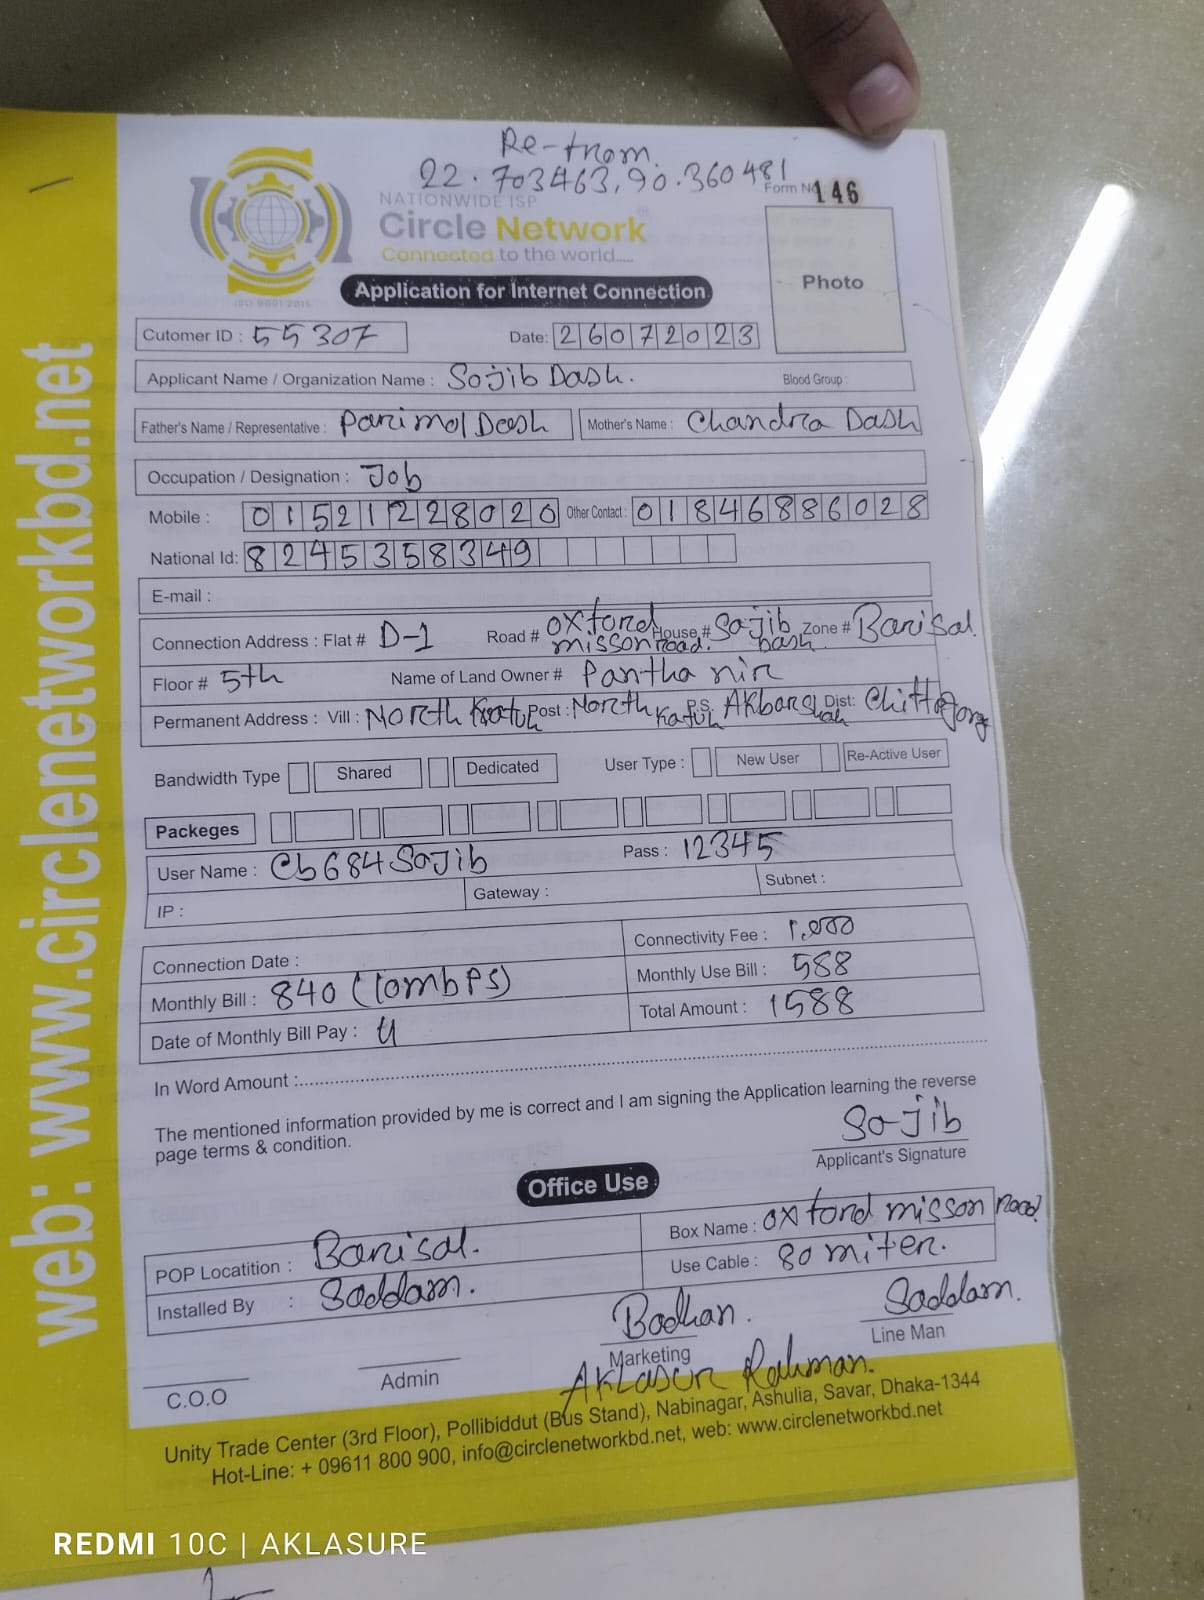 Re-from.
22.703463,90.360481
Form No 146
NATIONWIDE ISP
Circle Network
Connected to the world.....
ISO 9001:2015
Photo
Application for Internet Connection
Cutomer ID : 55307 Date: 26072023
Applicant Name / Organization Name : Sojib Dash. Blood Group :
Father's Name / Representative : Parimol Dash Mother's Name : Chandra Dash
Occupation / Designation : Job
Mobile : 01521228020 Other Contact : 01846886028
National Id: 8245358349
E-mail :
Connection Address : Flat # D-1 Road # oxford misson road. House # Sojib Dash Zone # Barisal
Floor # 5th Name of Land Owner # Pantha nir
Permanent Address : Vill : North Post : North P.S. Akbarshah Dist: Chittagong
Bandwidth Type Shared Dedicated User Type : New User Re-Active User
Packeges
User Name : Cb684Sojib Pass : 12345
IP : Gateway : Subnet :
Connection Date : Connectivity Fee : 1,000
Monthly Bill : 840 (10mbPS) Monthly Use Bill : 588
Date of Monthly Bill Pay : Total Amount : 1588
In Word Amount :
The mentioned information provided by me is correct and I am signing the Application learning the reverse
page terms & condition.
Sojib
Applicant's Signature
Office Use
POP Locatition : Barisal. Box Name : oxford misson Road
Installed By : Saddam. Use Cable : 80 miter.
Badhan. Saddam.
C.O.O Admin Marketing Line Man
Aklasur Rahman.
Unity Trade Center (3rd Floor), Pollibiddut (Bus Stand), Nabinagar, Ashulia, Savar, Dhaka-1344
Hot-Line: + 09611 800 900, info@circlenetworkbd.net, web: www.circlenetworkbd.net
web: www.circlenetworkbd.net
REDMI 10C | AKLASURE